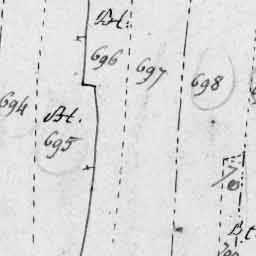 Bt.
696
697
698
694
Bt.
695
B.t